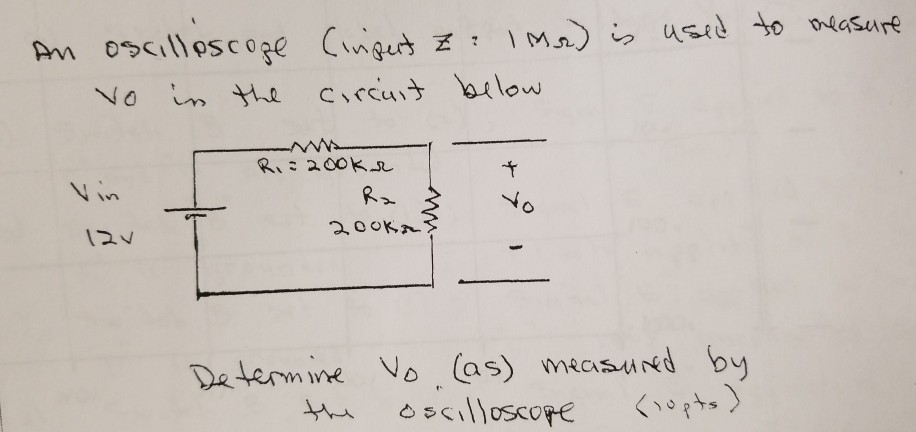 An oscilloscope (input Z : 1MΩ) is used to measure
Vo in the circuit below
R1 = 200KΩ
Vin
12v
R2
200KΩ
+
Vo
-
Determine Vo (as) measured by
the oscilloscope (10pts)